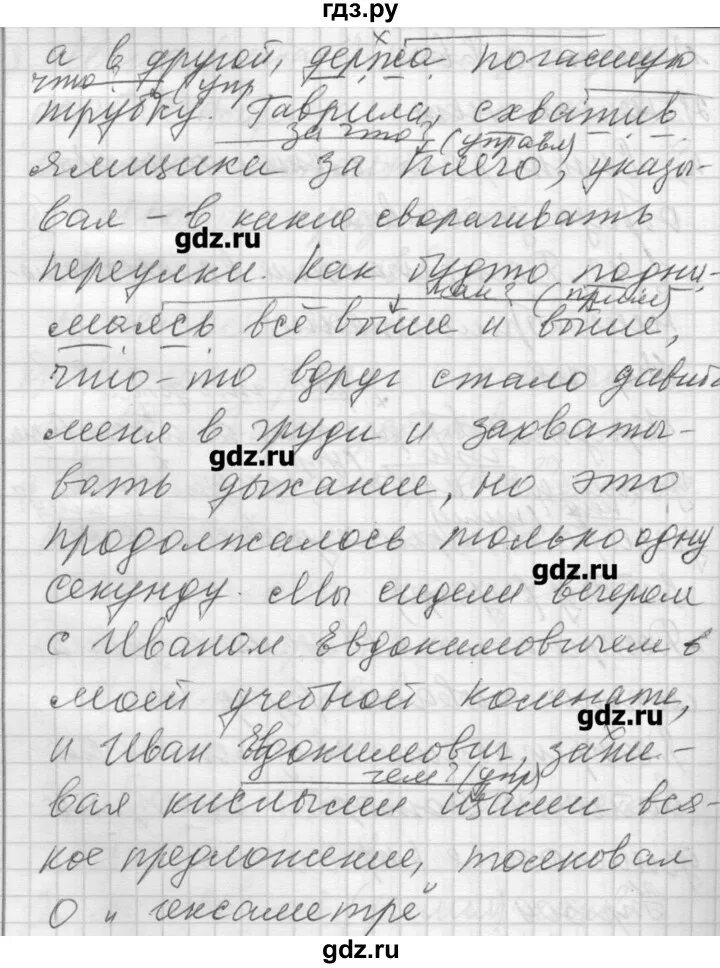 гдз.ру
а в другой, держа погасшую
что? (упр
трубку. Гаврила, схватив
за что? (управл)
ямщика за плечо, указы-
вал – в какие сворачивать
gdz.ru
переулки. Как будто подни-
как? (прим)
маясь всё выше и выше,
что-то вдруг стало давить
меня в груди и захваты-
gdz.ru
вать дыхание, но это
продолжалось только одну
gdz.ru
секунду. Мы сидели вечером
с Иваном Евдокимовичем в
моей учебной комнате,
gdz.ru
и Иван Евдокимович, зажи-
чем? (упр)
вая кислыми щами вся-
кое предложение, толковал
о гексаметре
gdz.ru